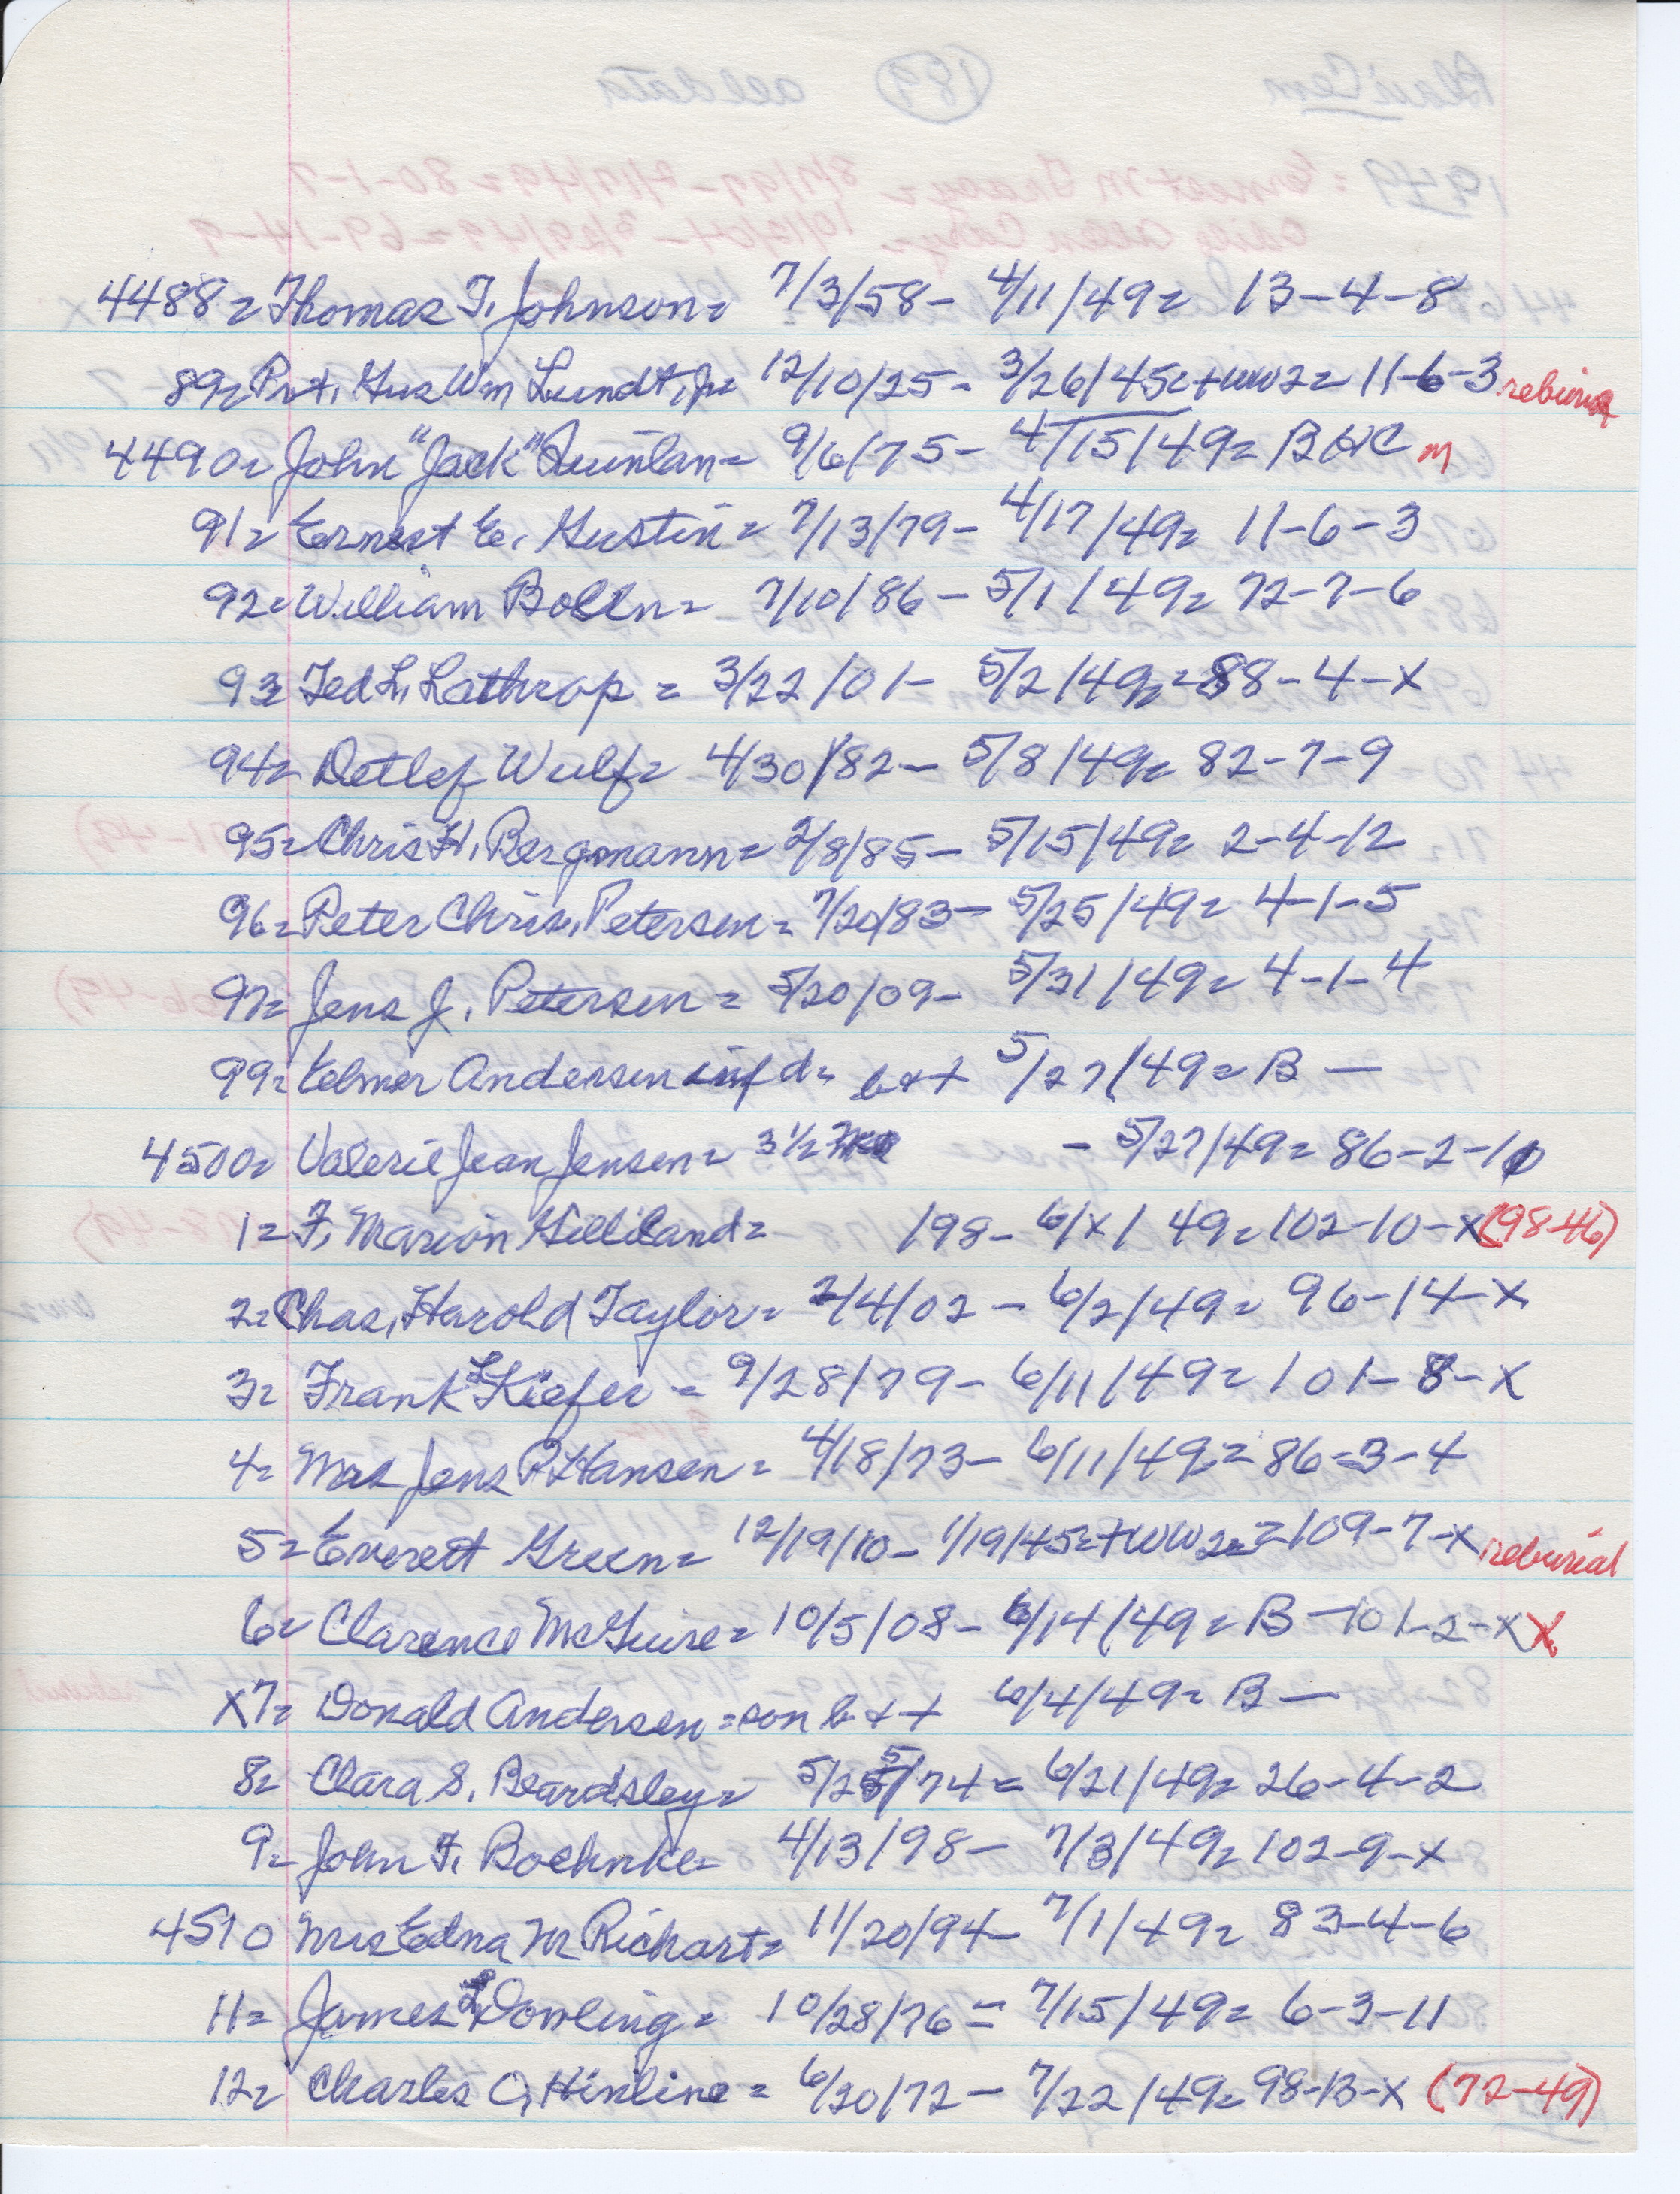 4488= Thomas T. Johnson= 7/3/58- 4/11/49= 13-4-8
89= Pvt. Gus Wm Lundt, Jr= 12/10/25- 3/26/45=+WW2= 11-6-3 reburial
4490= John "Jack" Quinlan= 9/6/75- 4/15/49= B HC m
91= Ernest E. Gustin= 7/13/79- 4/17/49= 11-6-3
92= William Bolln= 7/10/86- 5/1/49= 72-7-6
93= Ted L. Lathrop= 3/22/01- 5/2/49= =88-4-X
94= Detlef Wulf= 4/30/82- 5/8/49= 82-7-9
95= Chris H. Bergmann= 2/8/85- 5/15/49= 2-4-12
96= Peter Chris. Petersen= 7/20/83- 5/25/49= 4-1-5
97= Jens J. Petersen= 5/20/09- 5/31/49= 4-1-4
99= Elmer Andersen inf d= b++ 5/27/49= B —
4500= Valerie Jean Jensen= 3 1/2 - 5/27/49= 86-2-10
1= F. Marion Gilliland= /98- 6/X/49= 102-10-X (98-46)
2= Chas. Harold Taylor= 2/4/02- 6/2/49= 96-14-X
3= Frank L Kiefer= 9/28/79- 6/11/49= 101-8-X
4= Mrs Jens P. Hansen= 4/18/73- 6/11/49= 86-3-4
5= Everett Green= 12/19/10- 1/19/45=+WW2= =109-7-X reburial
6= Clarence McGuire= 10/5/08- 6/14/49= B —101-2-X X
X7= Donald Andersen= son b++ 6/4/49= B —
8= Clara S. Beardsley= 5/25/74= 6/21/49= 26-4-2
9= John F. Boehnke= 4/13/98- 7/3/49= 102-9-X
4510 Mrs Edna M Richart= 11/20/94- 7/1/49= 83-4-6
11= James L Dowling= 10/28/76= 7/15/49= 6-3-11
12= Charles C. Hinline= 6/20/72- 7/22/49= 98-13-X (72-49)